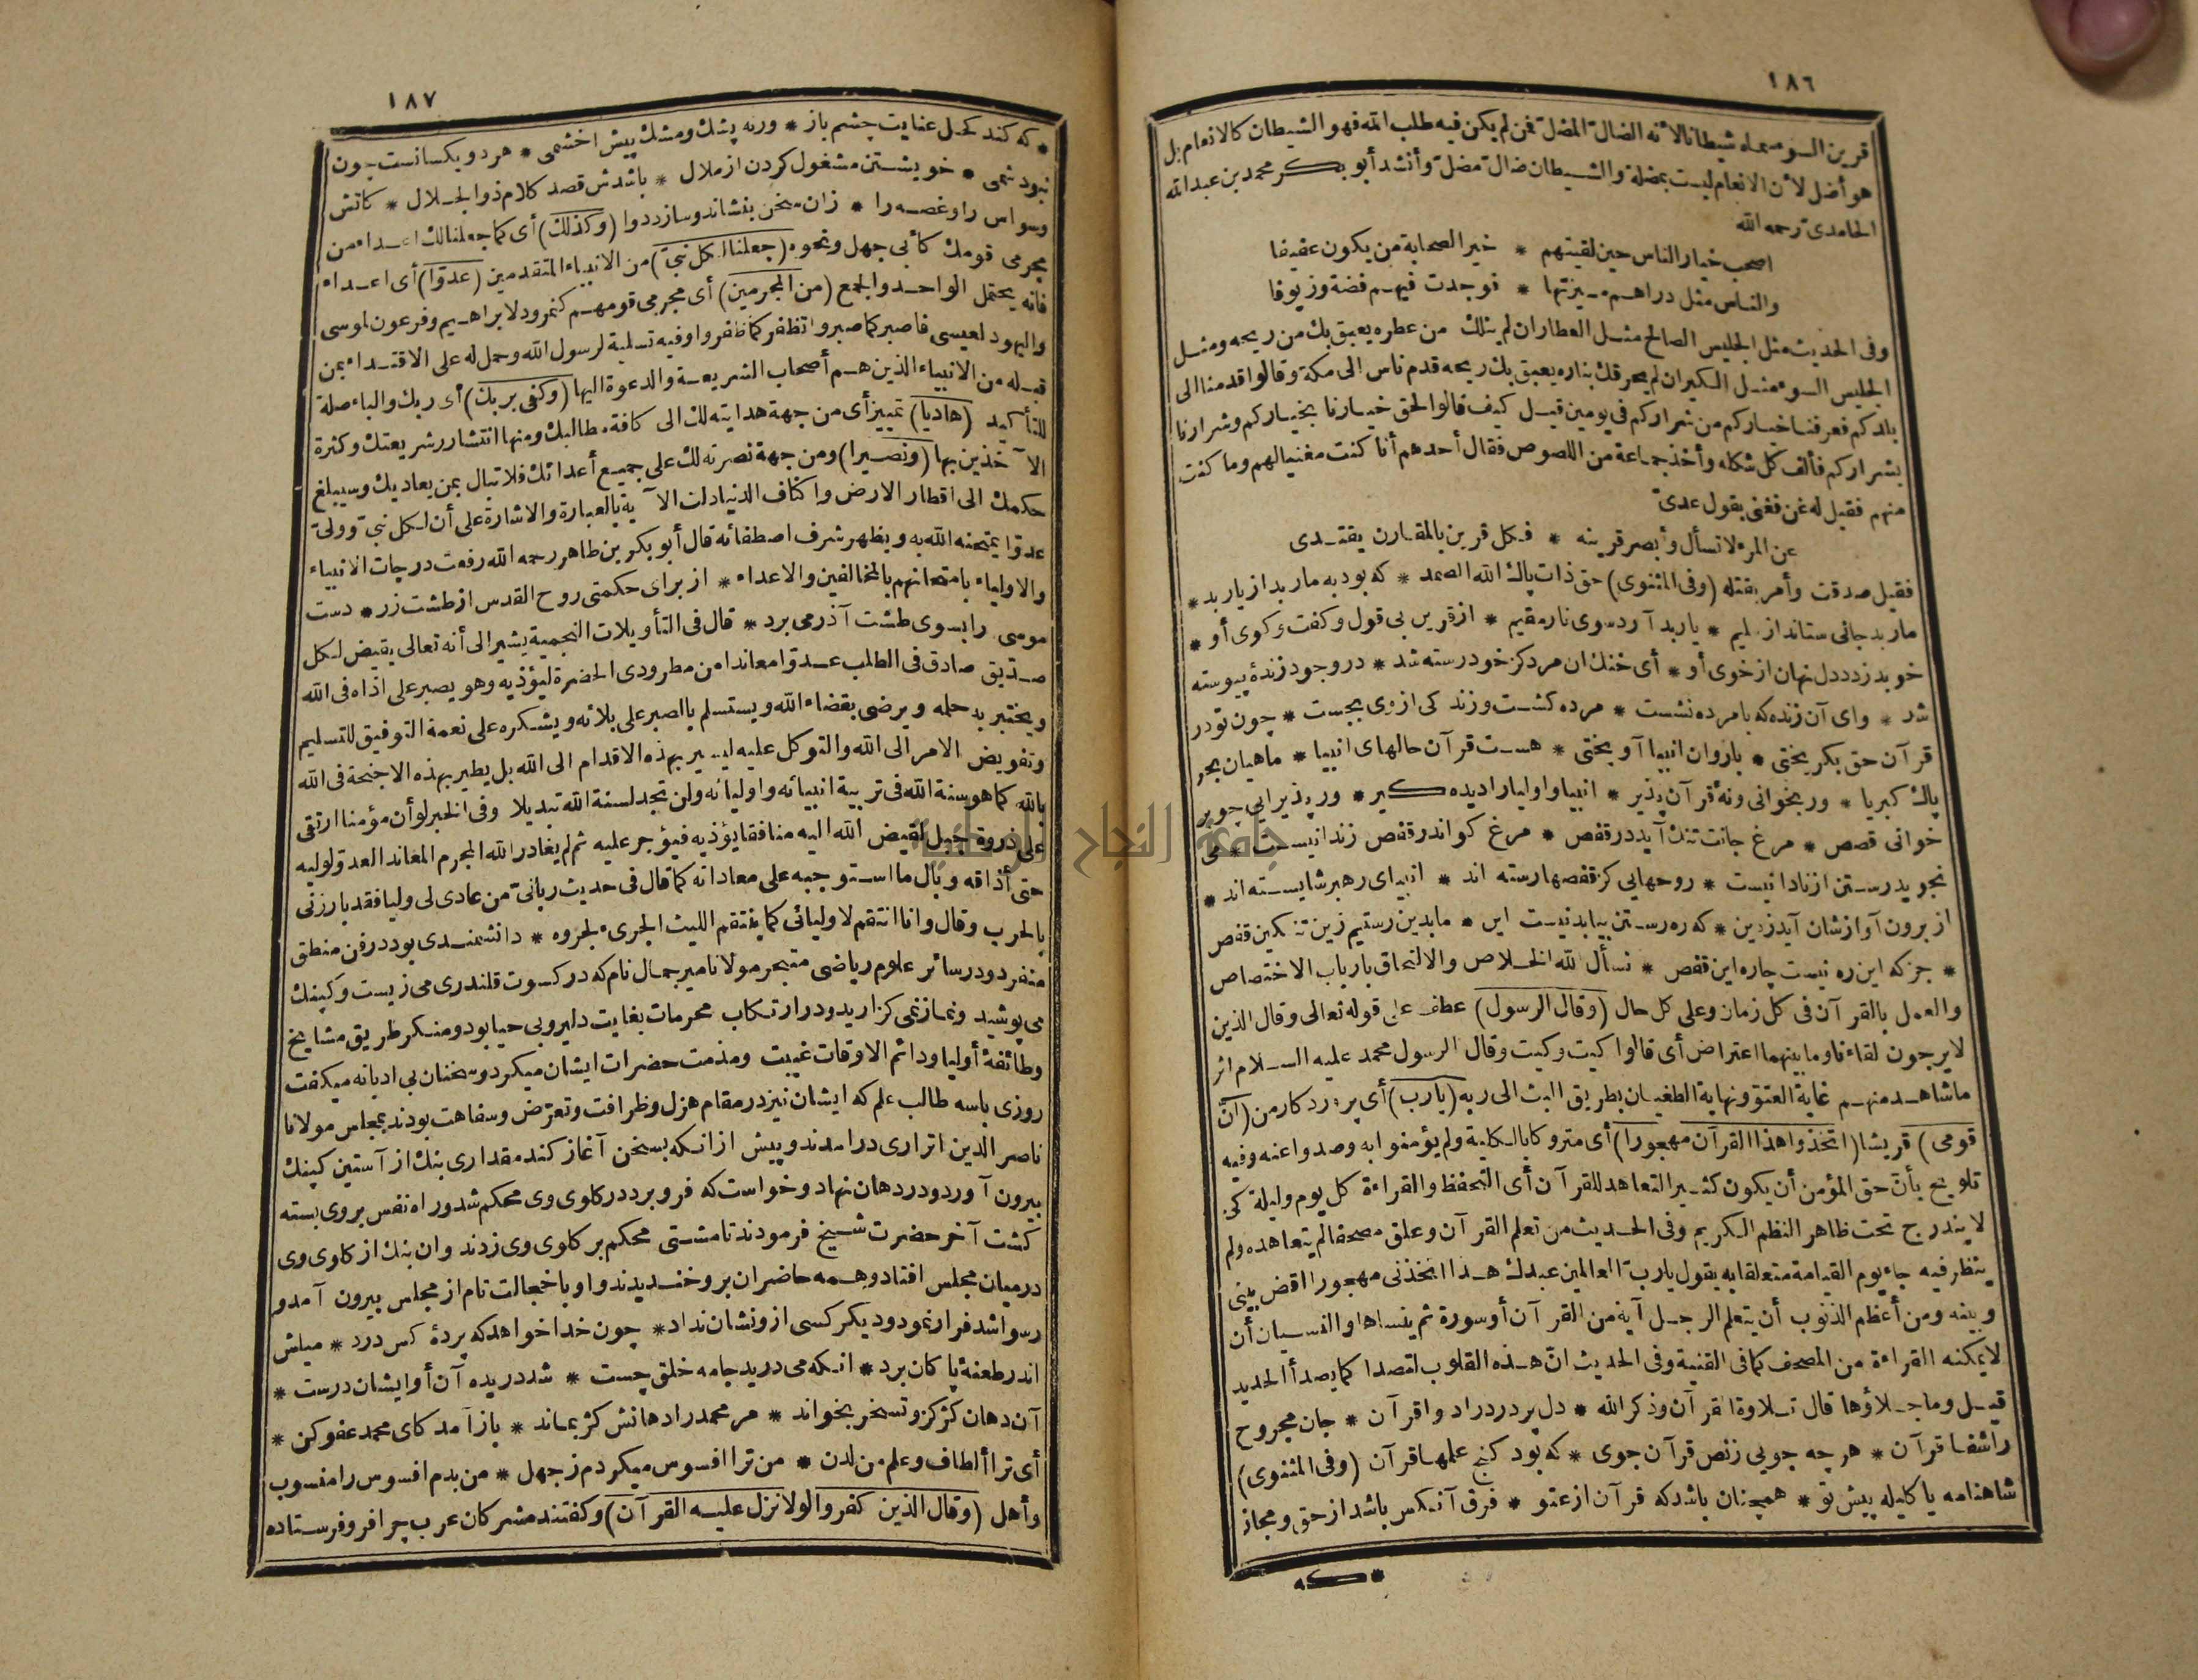 ١٨٦
قرين السوء سماه شيطانا لأنه الضال المضل فمن لم يكن فيه طلب الله فهو الشيطان كالانعام بل
هو أضل لأن الانعام ليست بمضلة والشيطان ضال مضل وأنشد أبو بكر محمد بن عبد الله
الحامدى رحمه الله
اصحب خيار الناس حين لقيتهم * خير الصحابة من يكون عفيفا
والناس مثل دراهم ميزتها * فوجدت فيهم فضة وزيوفا
وفى الحديث مثل الجليس الصالح مثل العطاران لم ينلك من عطره يعبق بك من ريحه ومثل
الجليس السوء مثل الكيران لم يحرقك بناره يعبق بك ريحه قدم ناس الى مكة وقالوا قدمنا الى
بلدكم فعرفنا خياركم من شراركم فى يومين قيل كيف قالوا لحق خيارنا بخياركم وشرارنا
بشراركم فألف كل شكله وأخذ جماعة من اللصوص فقال أحدهم أنا كنت مغنيا لهم وما كنت
منهم فقيل له غن فغنى بقول عدىّ
عن المرء لا تسأل وأبصر قرينه * فكل قرين بالمقارن يقتدى
فقيل صدقت وأمر بقتله (وفى المثنوى) حق ذات پاك الله الصمد * كه بود به ماربد از ياربد *
ماربد جانى ستاند از سليم * ياربد آرد سوى نار مقيم * از قرين بى قول وكفت وكوى أو *
خو بدزدد دل نهان از خوى أو * أى خنك ان مرد كز خود رسته شد * در وجود زندهٔ پيوسته
شد * واى آن زنده كه با مرده نشست * مرده كشت وزند كى ازوى بجست * چون تو در
قرآن حق بكريختى * با روان انبيا آويختى * هست قرآن حالهاى انبيا * ماهيان بحر
پاك كبريا * ور بخوانى ونهٔ قرآن پذير * انبيا واوليا را ديده كير * ور پذيرايى چو بر
خوانى قصص * مرغ جانت تنك آيد در قفص * مرغ كو اندر قفص زندانيست * مى
نجويد رستن از نادانيست * روحهايى كز قفصها رسته اند * انبياى رهبر شايسته اند *
از برون آواز شان آيد زدين * كه ره رستن بيابدنيت اين * مابدين رستيم زين تنكين قفص
* جز كه اين ره نيست چاره اين قفص * نسأل الله الخلاص والالتحاق بارباب الاختصاص
والعمل بالقرآن فى كل زمان وعلى كل حال (وقال الرسول) عطف على قوله تعالى وقال الذين
لا يرجون لقاءنا وما بينهما اعتراض أى قالوا كيت وكيت وقال الرسول محمد عليه السلام اثر
ما شاهد منهم غاية العتو ونهاية الطغيان بطريق البث الى ربه (يا رب) أى پروردكار من (انّ
قومى) قريشا (اتخذوا هذا القرآن مهجورا) أى متروكا بالكلية ولم يؤمنوا به وصدوا عنه وفيه
تلويح بأن حق المؤمن أن يكون كثير التعاهد للقرآن أى التحفظ والقراءة كل يوم وليلة كى
لا يندرج تحت ظاهر النظم الكريم وفى الحديث من تعلم القرآن وعلق مصحفا لم يتعاهده ولم
ينظر فيه جاء يوم القيامة متعلقا به يقول يا رب العالمين عبدك هذا اتخذنى مهجورا اقض بينى
وبينه ومن أعظم الذنوب أن يتعلم الرجل آية من القرآن أو سورة ثم ينساها والنسيان أن
لا يمكنه القراءة من المصحف كما فى القنية وفى الحديث انّ هذه القلوب لتصدا كما يصدأ الحديد
قيل وما جلاؤها قال تلاوة القرآن وذكر الله * دل پر درد راد وا قرآن * جان مجروح
را شفا قرآن * هر چه جويى زنص قرآن جوى * كه بود كنج علمها قرآن (وفى المثنوى)
شاهنامه يا كليله پيش تو * همچنان باشد كه قرآن از عتو * فرق آنكس باشد از حق ومجاز
* كه
١٨٧
* كه كند كحل عنايت چشم باز * ورنه پشك ومشك پيش اخشمى * هردو يكسانست چون
نبود شمى * خويشتن مشغول كردن از ملال * باشدش قصد كلام ذوالجلال * كاتش
وسواس را وغصه را * زان سخن بنشاند وسازد دوا (وكذلك) أى كما جعلنا لك اعداء من
مجرمى قومك كأبى جهل ونحوه (جعلنا لكل نبىّ) من الانبياء المتقدمين (عدوّا) أى اعداء
فانه يحتمل الواحد والجمع (من المجرمين) أى مجرمى قومهم كنمرود لابراهيم وفرعون لموسى
واليهود لعيسى فاصبر كما صبروا تظفر كما ظفروا وفيه تسلية لرسول الله وحمل له على الاقتداء بمن
قبله من الانبياء الذين هم أصحاب الشريعة والدعوة اليها (وكفى بربك) أى ربك والباء صلة
للتأكيد (هاديا) تمييز أى من جهة هدايته لك الى كافة مطالبك ومنها انتشار شريعتك وكثرة
الآخذين بها (ونصيرا) ومن جهة نصرته لك على جميع أعدائك فلا تبال بمن يعاديك وسيبلغ
حكمك الى اقطار الارض واكناف الدنيا دلت الآية بالعبارة والاشارة على أن لكل نبىّ وولىّ
عدوّا يمتحنه الله به ويظهر شرف اصطفائه قال أبو بكر بن طاهر رحمه الله رفعت درجات الانبياء
والاولياء بامتحانهم بالمخالفين والاعداء * از براى حكمتى روح القدس از طشت زر * دست
موسى را بسوى طشت آذر مى برد * قال فى التأويلات النجمية يشير الى أنه تعالى يقيض لكل
صديق صادق فى الطلب عدوّا معاندا من مطرودى الحضرة ليؤذيه وهو يصبر على اذاه فى الله
ويختبر به حلمه ويرضى بقضاء الله ويستسلم بالصبر على بلائه ويشكره على نعمة التوفيق للتسليم
وتفويض الامر الى الله والتوكل عليه ليسير بهذه الاقدام الى الله بل يطير بهذه الاجنحة فى الله
بالله كما هو سنة الله فى تربية انبيائه واوليائه ولن تجد لسنة الله تبديلا وفى الخبر لو أن مؤمنا ارتقى
على ذروة جبل لقيض الله اليه منافقا يؤذيه فيؤجر عليه ثم لم يغادر الله المجرم المعاند العدوّ لوليه
حتى أذاقه وبال ما استوجبه على معاداته كما قال فى حديث ربانىّ من عادى لى وليا فقد بارزنى
بالحرب وقال وانا انتقم لاوليائى كما ينتقم الليث الجرىء لجروه * دانشمندى بود در فن منطق
منفرد ودر سائر علوم رياضى متبحر مولانا مير جمال نام كه در كسوت قلندرى مى زيست وكپنك
مى پوشيد ونماز نمى كزاريد ودر ارتكاب محرمات بغايت دلير وبى حيا بود ومنكر طريق مشايخ
وطائفهٔ أوليا ودائم الاوقات غيبت ومذمت حضرات ايشان ميكرد وسخنان بى ادبانه ميكفت
روزى با سه طالب علم كه ايشان نيز در مقام هزل وظرافت وتعرّض وسفاهت بودند بمجلس مولانا
ناصر الدين اترارى در امدند وپيش از انكه بسخن آغاز كند مقدارى بنك از آستين كپنك
بيرون آورد ودر دهان نهاد وخواست كه فرو برد در كلوى وى محكم شد وراه نفس بروى بسته
كشت آخر حضرت شيخ فرمودند تا مشتى محكم بر كلوى وى زدند وان بنك از كلوى وى
درميان مجلس افتاد وهمه حاضران برو خنديدند واو با خجالت تام از مجلس بيرون آمد و
رسوا شد فرار نمود وديكر كسى ازو نشان نداد * چون خدا خواهد كه پردهٔ كس درد * ميلش
اندر طعنهٔ پاكان برد * انكه مى دريد جامه خلق چست * شد دريده آن أو ايشان درست *
آن دهان كژ كز وتسخر بخواند * مر محمد را دهانش كژ بماند * باز آمد كاى محمد عفو كن *
أى ترا ألطاف وعلم من لدن * من ترا افسوس ميكردم ز جهل * من بدم افسوس را منسوب
وأهل (وقال الذين كفروا لولا نزل عليه القرآن) وكفتند مشركان عرب چرا فرو فرستاده
جامعة النجاح الوطنية